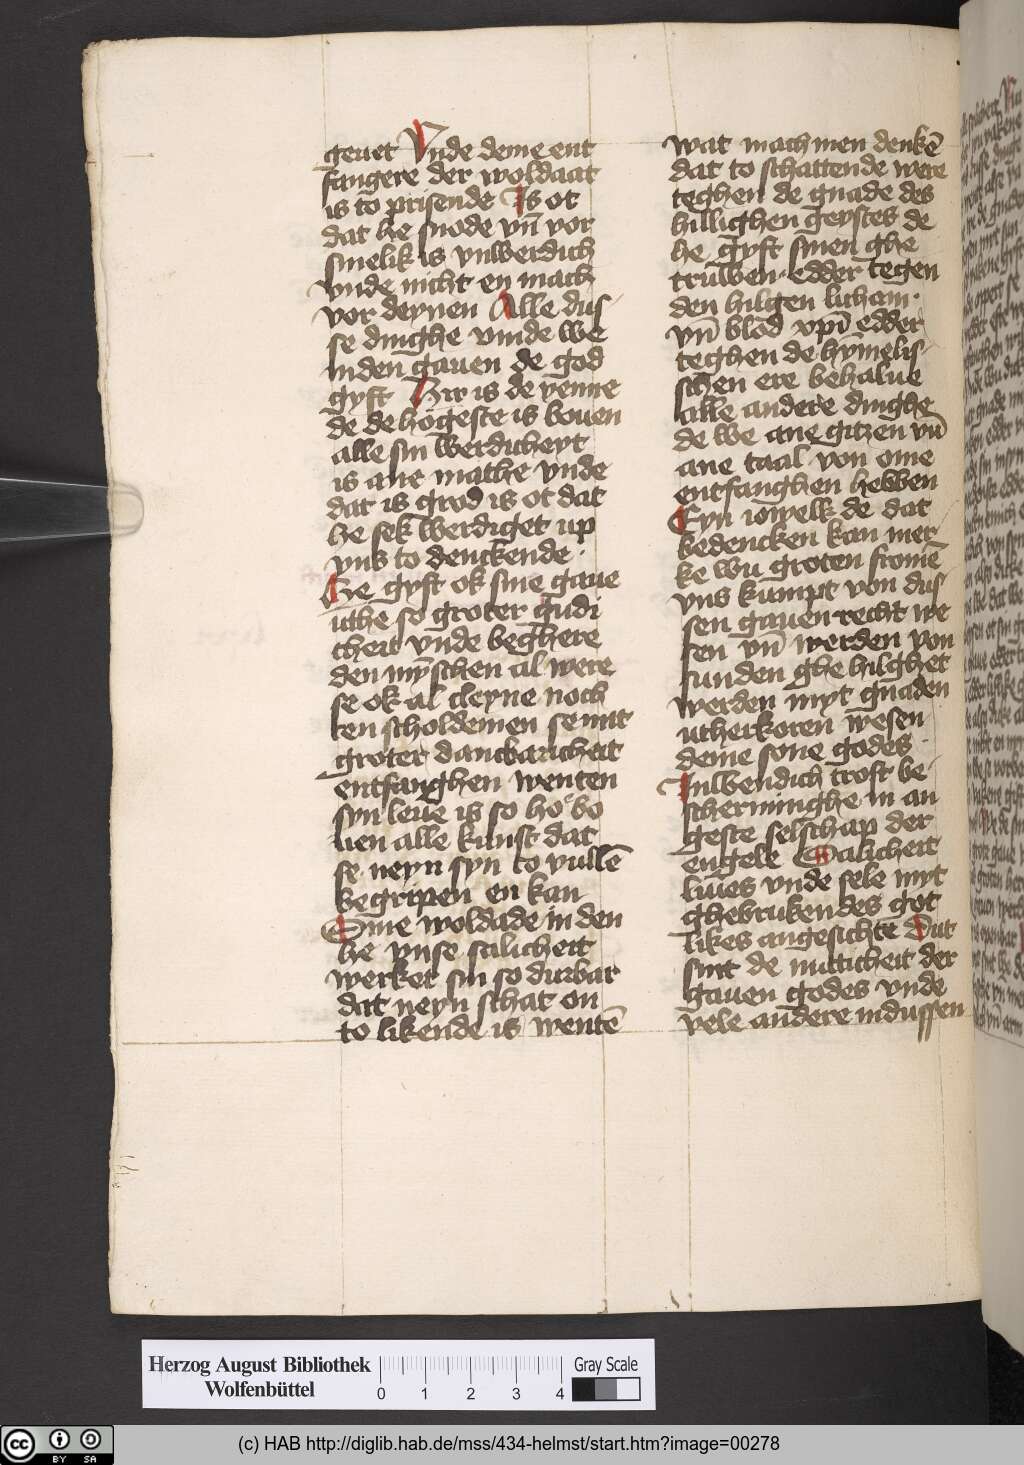 geuet Vnde deme ent
fangere der woldaat
is to prisende Is ot
dat he snode vn̄ vor
smelik is vnwerdich
vnde nicht en mach
vor deynen Alle dus
se dinghe vinde we
in den gauen de god
gyft Hir is de yenne
de de hogeste is bouen
alle sin werdicheyt
is ane mathe vnde
dat is grod is ot dat
he sek werdiget up
vns to denckende ·
He gyft ok sine gaue
uthe so groter gudi
cheit vnde beghere
den mȳschen al were
se ok al cleyne noch
ten scholdemen se mit
groter danckbaricheit
entfanghen wenten
syn leue is so ho bo
uen alle kunst dat
se neyn syn to vullē
begripen en kan
Sine woldade in den
he vnse salicheit
werket sin so durbar
dat neyn schat on
to likende is wentē
wat mach men denkē
dat to schattende were
teghen de gnade des
hillighen geystes de
he gyft sinen ghe
truwen · edder tegen
den hilgen licham ·
vn̄ blod xpī edder
teghen de hȳmelis
schen ere behalue
alle andere dinghe
de we ane gitzen vn̄
ane taal von ome
entfanghen hebben
Eyn iowelk de dat
bedencken kan mer
ke wu groten fromē
vns kumpt von dus
sen gauen recht we
sen vn̄ werden von
sunden ghe hilghet
werden myt gnaden
utherkoren wesen
deme sone godes ·
Inwendich trost be
scherminghe in an
geste selschap der
engele Salicheit
liues vnde sele myt
ghebrukendes got
likes angesichte Dut
sint de nutticheit der
gauen godes vnde
vele andere in dussen
Herzog August Bibliothek
Wolfenbüttel
0 1 2 3 4
Gray Scale
(c) HAB http://diglib.hab.de/mss/434-helmst/start.htm?image=00278
cc BY SA